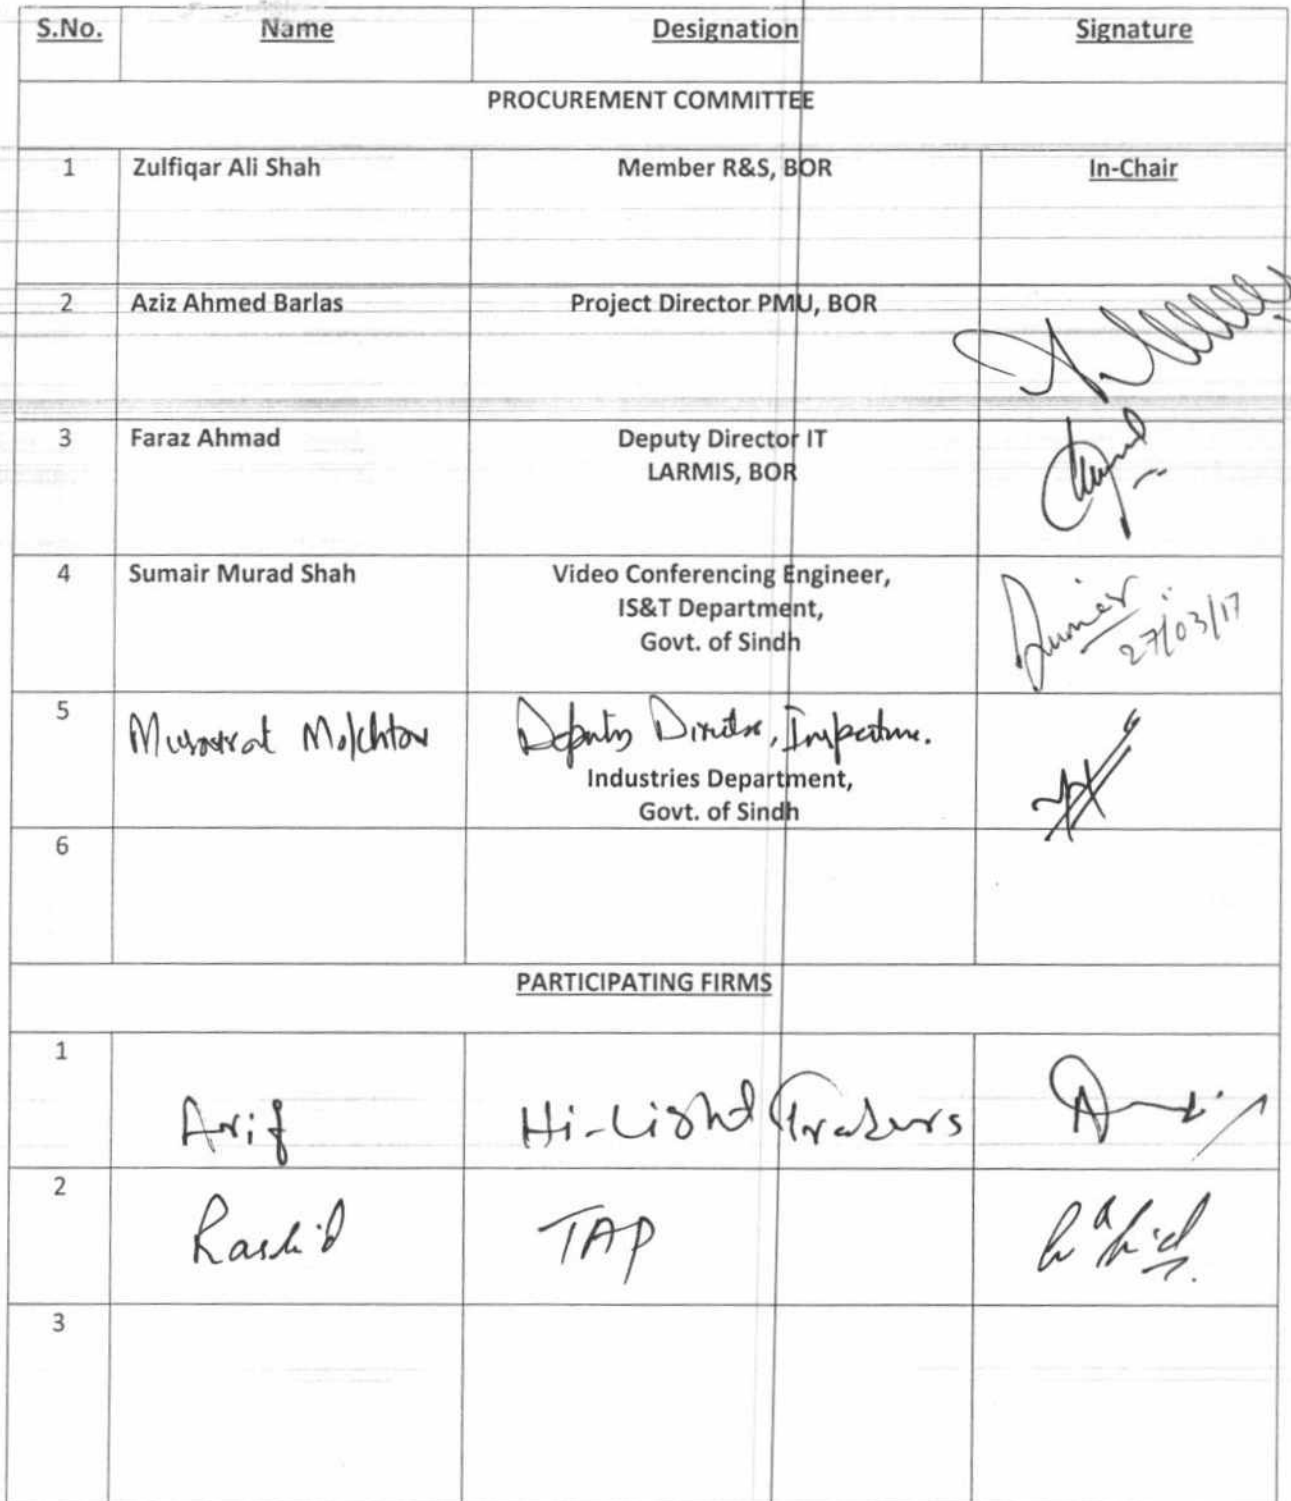 S.No. Name Designation Signature
PROCUREMENT COMMITTEE
1 Zulfiqar Ali Shah Member R&S, BOR In-Chair
2 Aziz Ahmed Barlas Project Director PMU, BOR
3 Faraz Ahmad Deputy Director IT
LARMIS, BOR
4 Sumair Murad Shah Video Conferencing Engineer,
IS&T Department,
Govt. of Sindh
Sumair 27/03/17
5 Musarrat Mokhtar Deputy Director,
Industries Department,
Govt. of Sindh
6
PARTICIPATING FIRMS
1 Arif Hi-Light Traders
2 Rashid TAP Rashid
3